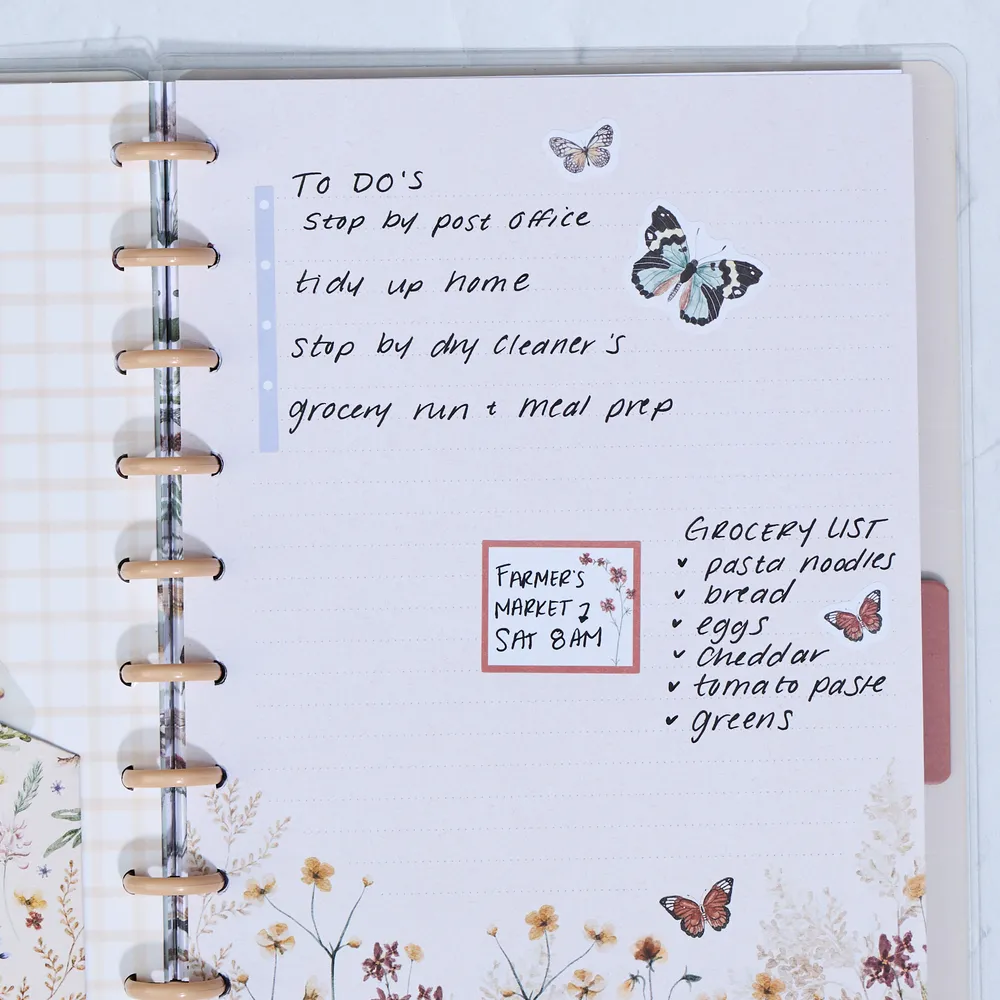 TO DO'S
stop by post office
tidy up home
stop by dry cleaner's
grocery run + meal prep
GROCERY LIST
pasta noodles
bread
eggs
cheddar
tomato paste
greens
FARMER'S
MARKET
SAT 8AM